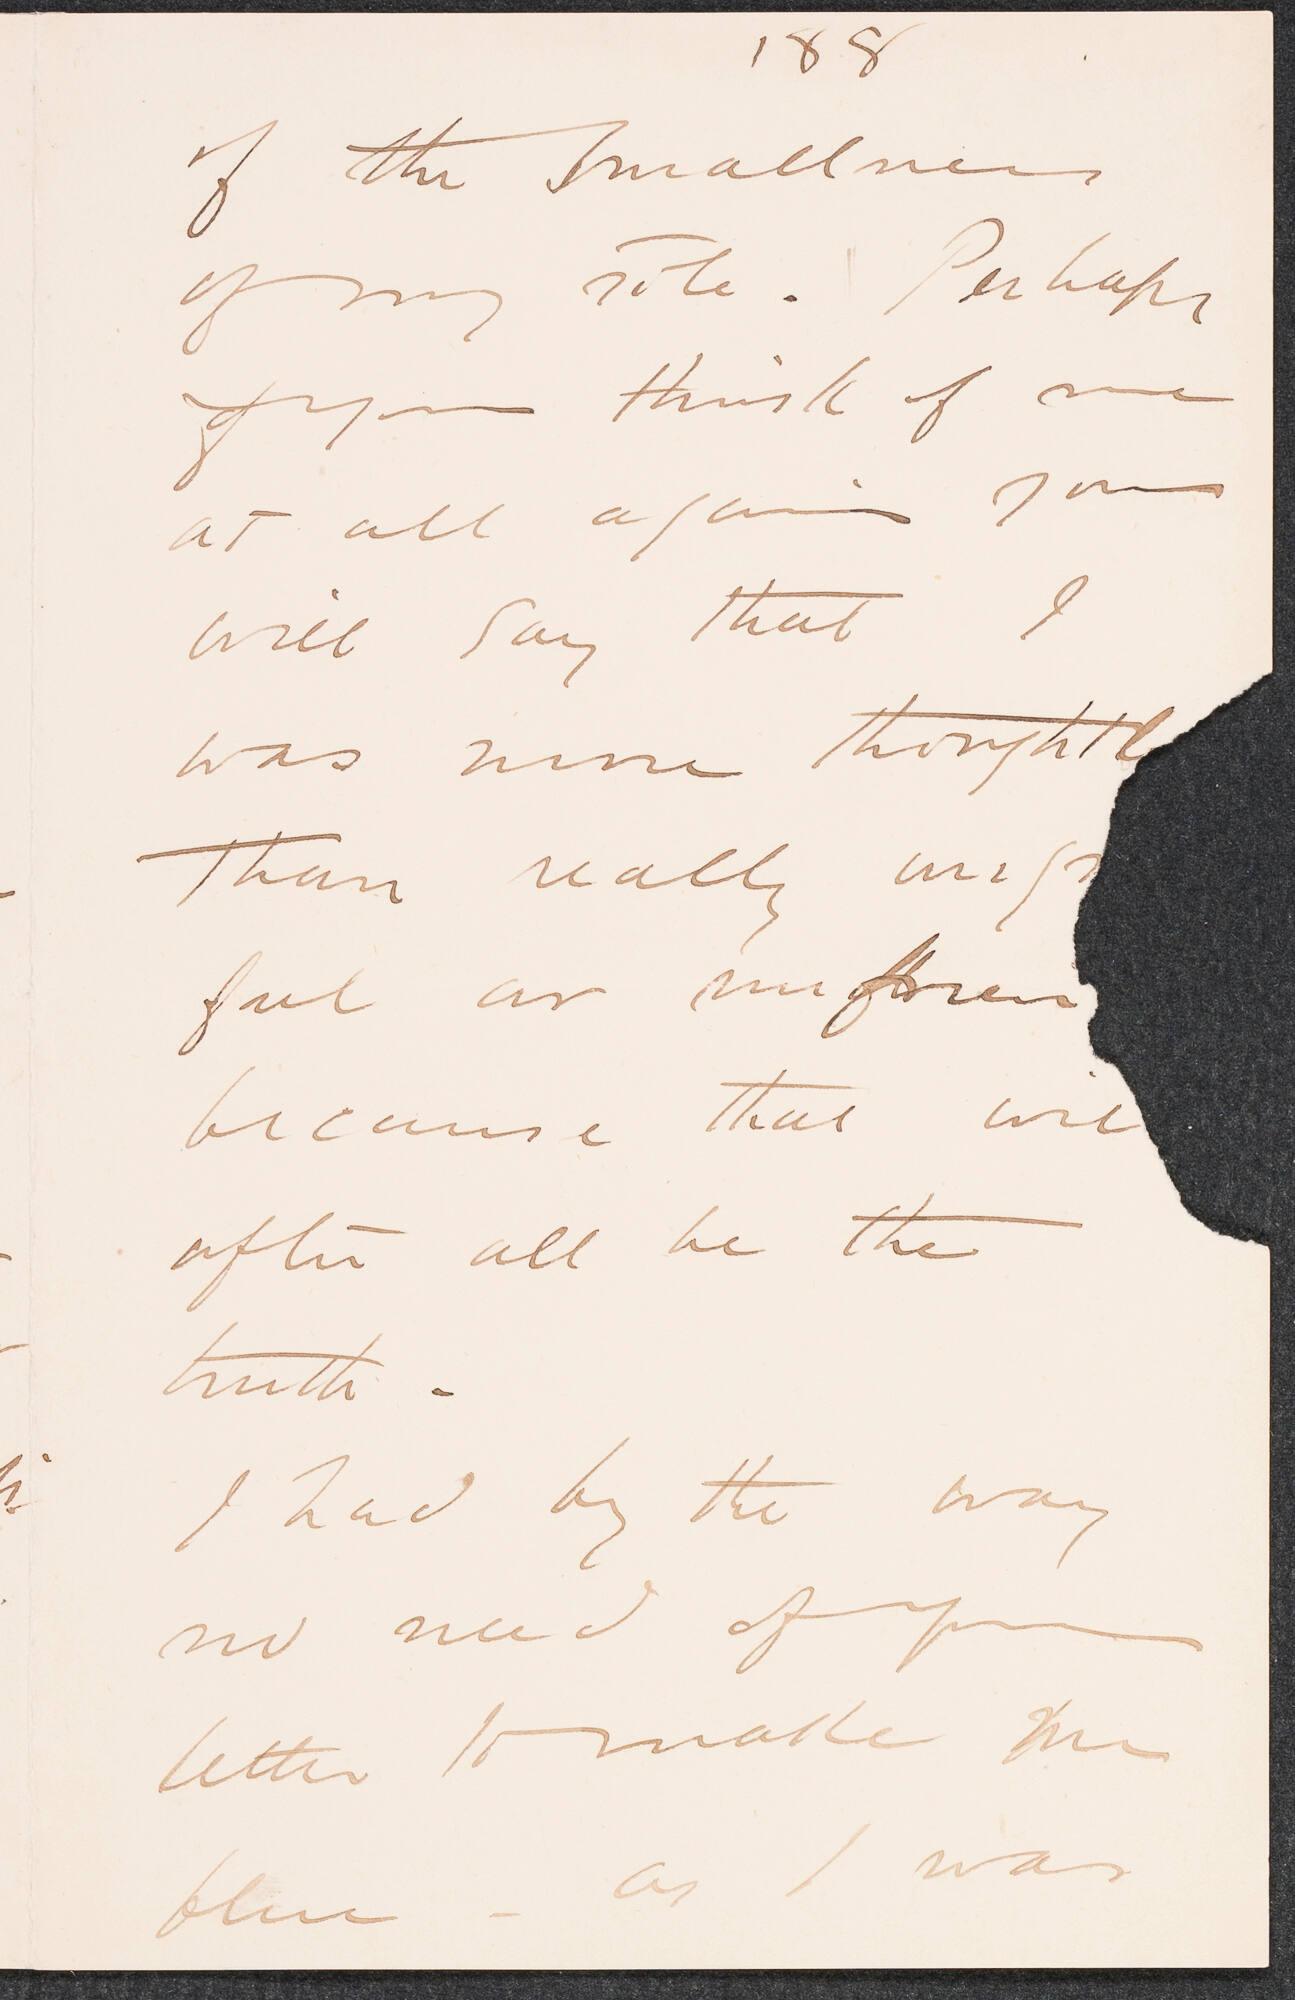 188
of the smallness
of my rôle. Perhaps
if you think of me
at all again you
will say that I
was more thoughtl
than really ungr
ful or
because that wil
after all be the
truth.
I had by the way
no need of your
letter to make me
blue - as I was